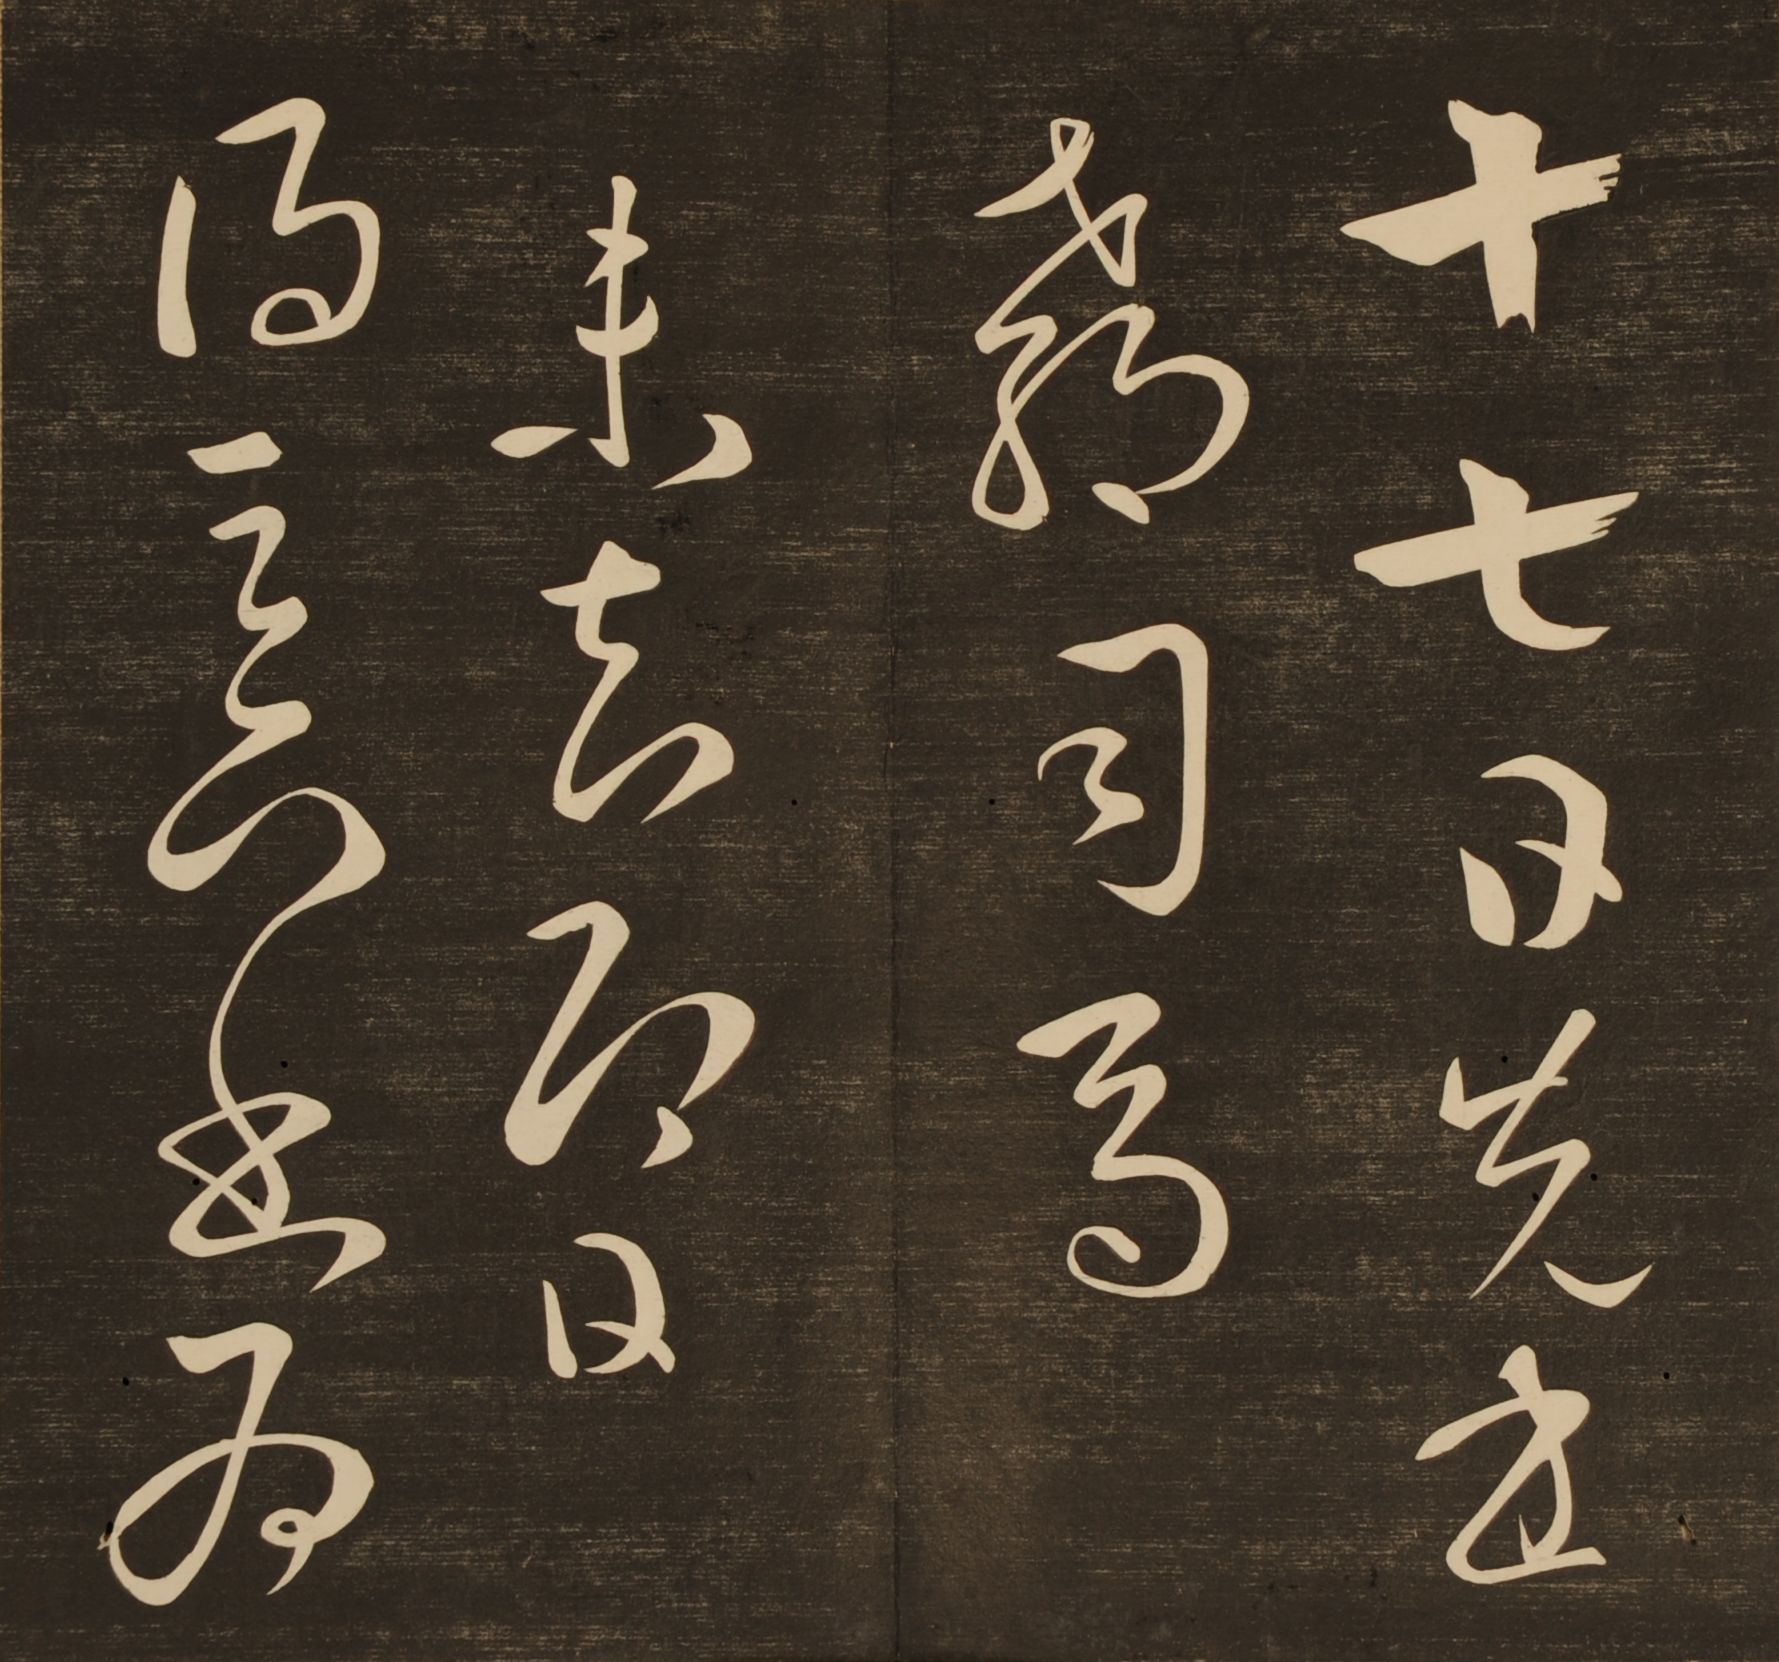 十七日先書
郗司馬
未去即日
得足下書為